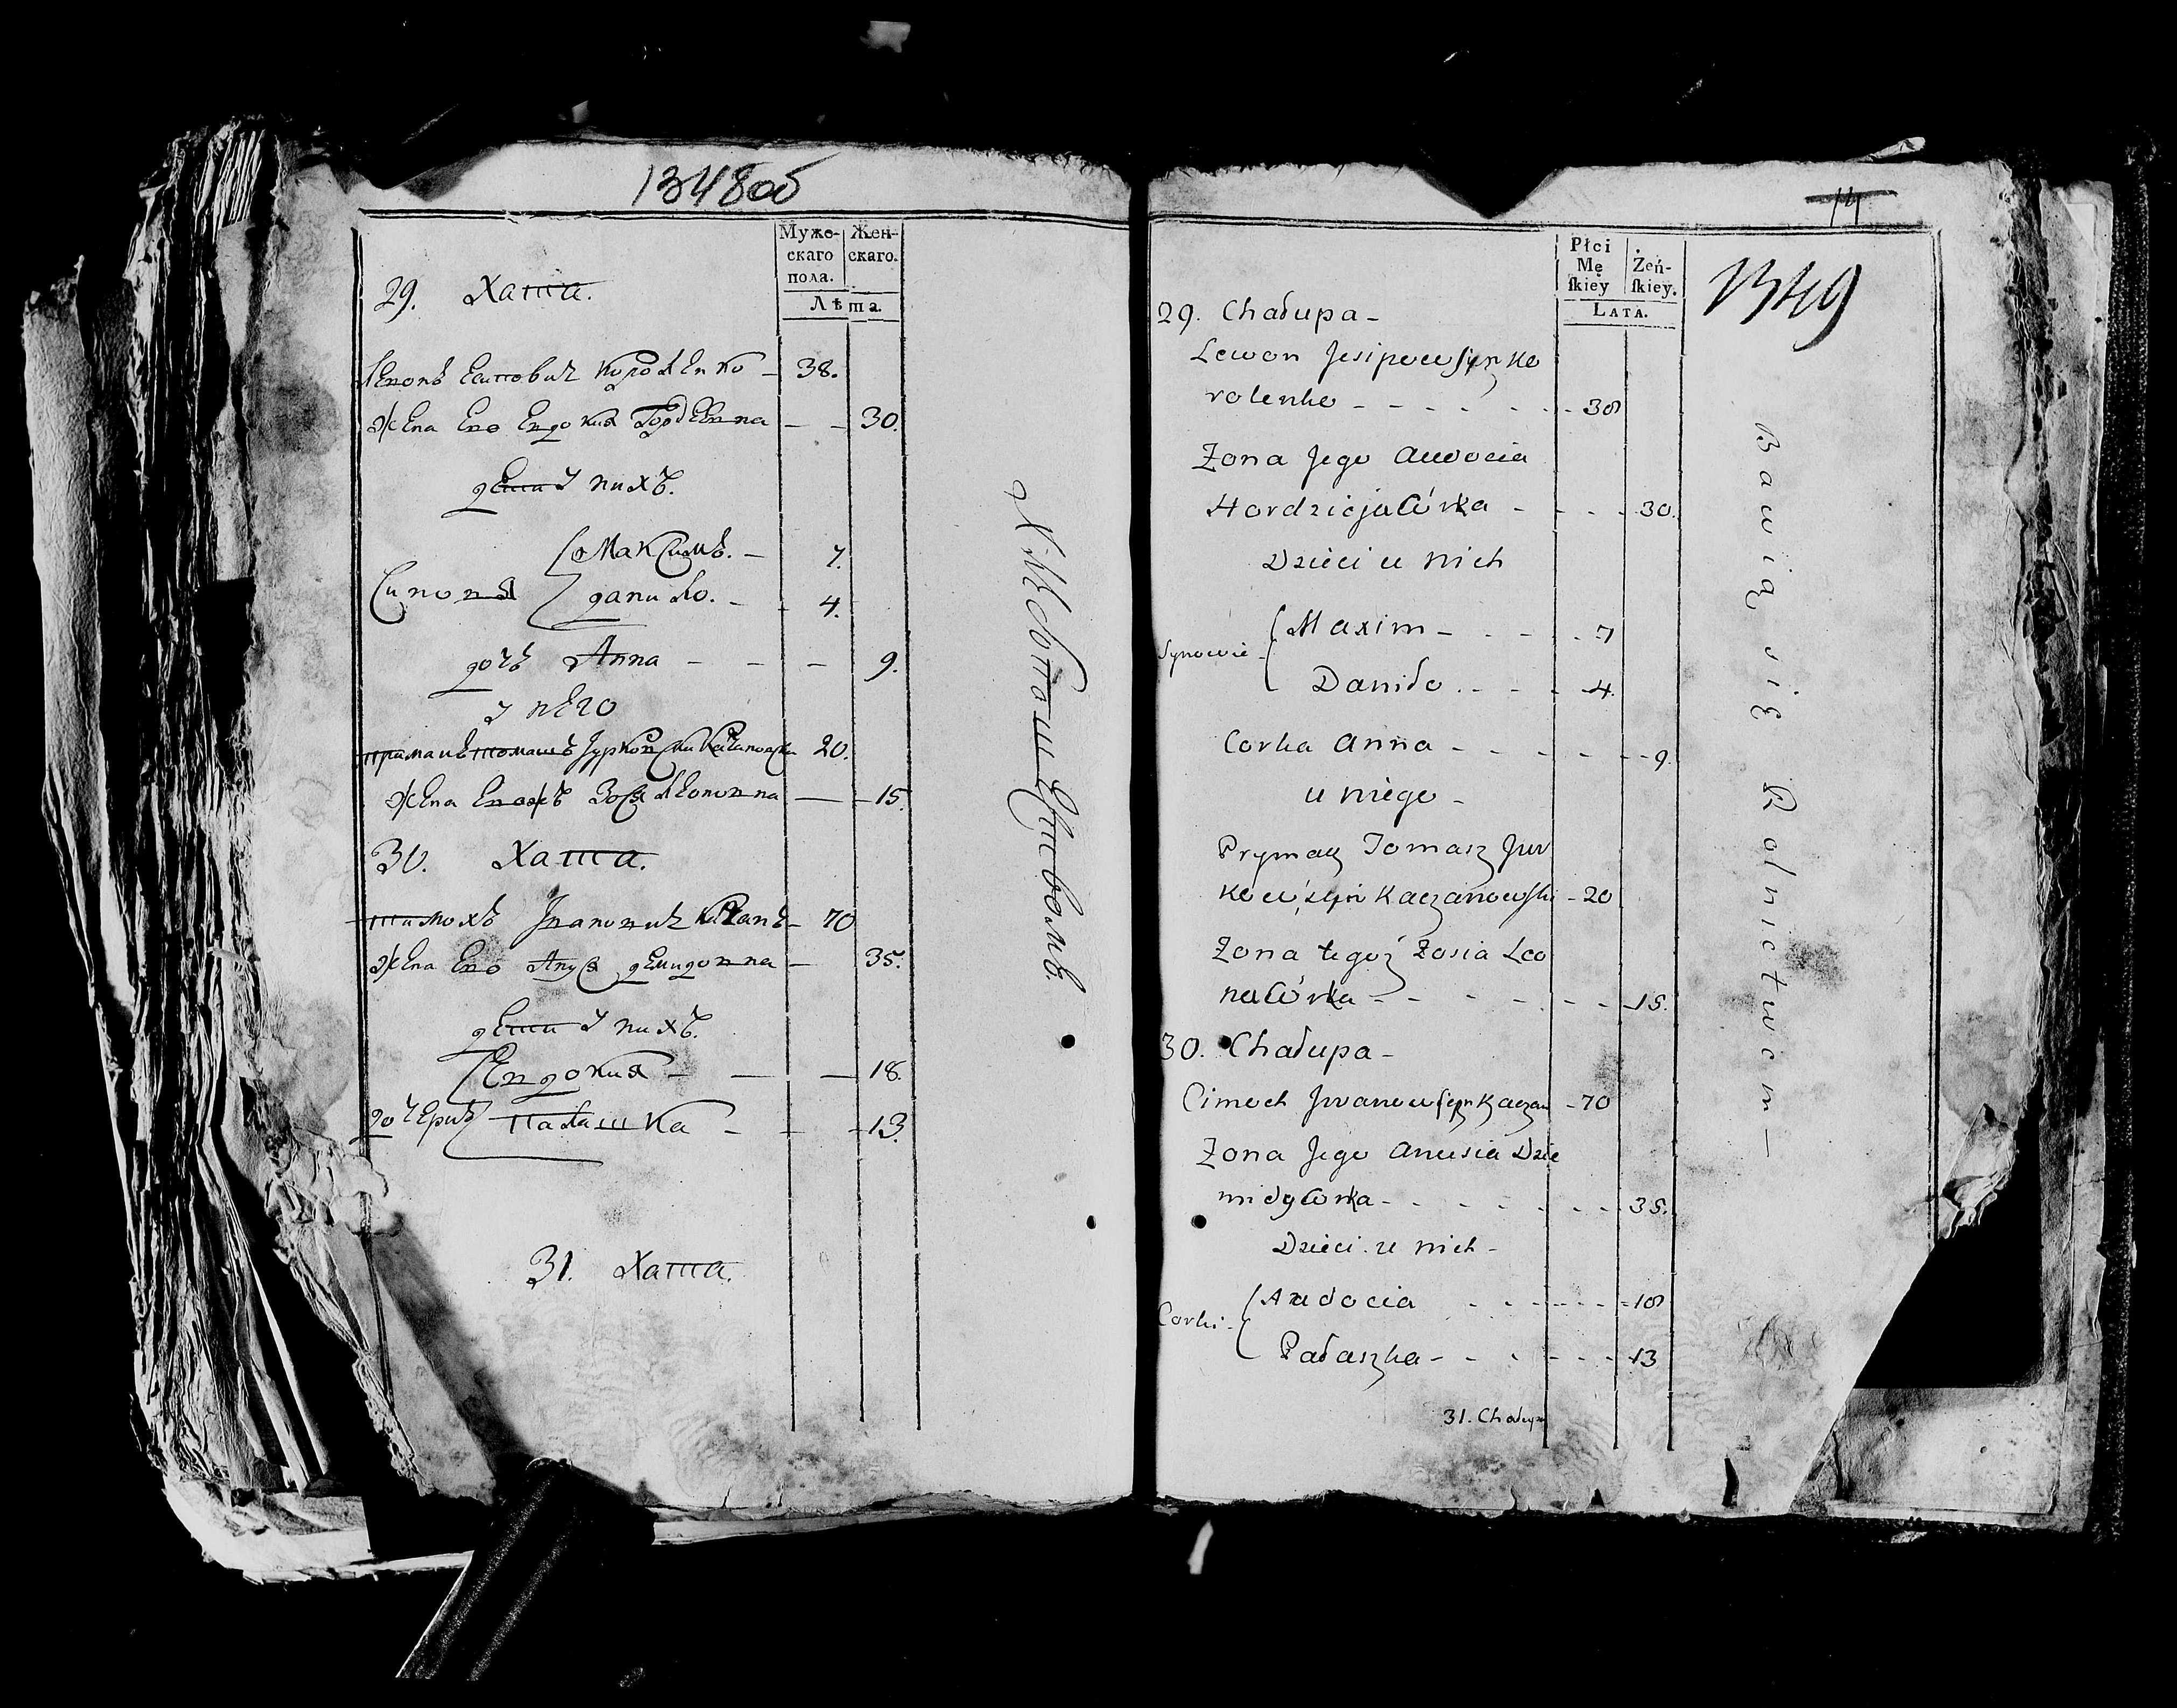 1348об
Муже-
скаго
пола.
Жен-
скаго.
Лѣта.
29. Хата.
Левонъ Есиповичъ Короленко — 38.
жена Ево Евдокия Гордеевна — — 30.
дети У нихъ.
Синовя
Максимъ. — 7.
данило. — 4.
дочь Анна — — — 9.
У него
примакъ томашъ Юрковъ Качановски 20.
жена Евожъ Зося Леоновна — — 15.
30. Хата.
тимохъ Ивановичъ Качанъ — 70
жена ЕвоАнуся демидовна — 35.
дети У нихъ.
дочери
Евдокия — — — 18.
Палашка — — 13.
31. Хата.
Хлебопашествомъ.
14
1349
Płci
Mę
ſkiey
Żeń-
ſkiey.
LATA.
29. Chałupa —
Lewon Jesipow syn Ko
rolenko — — — — 38
Żona Jego Awdocia
Hordzieja Córka — — — 30.
Dzieci u nich
Synowie —
Maxim — — — 7
Daniło. — — — 4.
Corka Anna — — — — 9.
u niego —
Prymak Tomasz Jur
kow syn Kaczanowski — 20
Żona tegoż Zosia Leo
na Córka — — — — 15.
30. Chałupa —
Cimoch Jwanow syn Kaczan — 70
Żona Jego Anusia Dzie
midy Córka — — — — 35.
Dzieci u nich —
Corki —
Audocia — — — 18
Pałaszka — — — 13
31. Chałupa
Bawią się Rolnictwem —